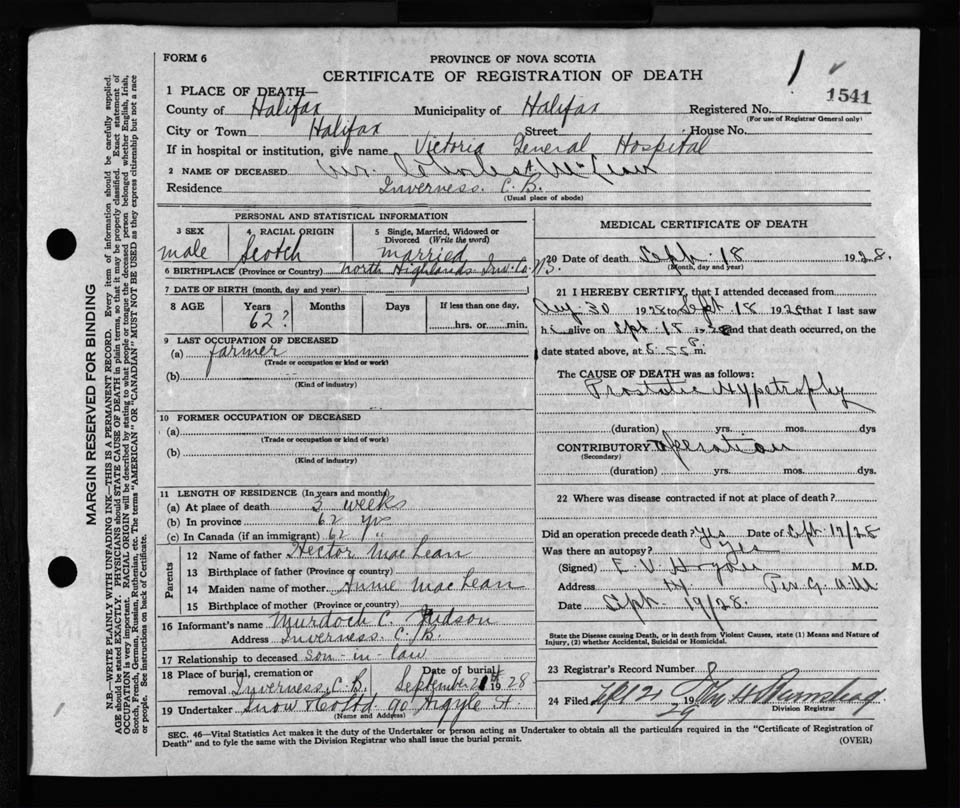 FORM 6
PROVINCE OF NOVA SCOTIA
CERTIFICATE OF REGISTRATION OF DEATH
1541
1 PLACE OF DEATH—
County of Halifax Municipality of Halifax Registered No.
(For use of Registrar General only)
City or Town Halifax Street House No.
If in hospital or institution, give name Victoria General Hospital
2 NAME OF DECEASED Mr. Charles A McLean
Residence Inverness. C. B.
(Usual place of abode)
PERSONAL AND STATISTICAL INFORMATION
3 SEX
male
4 RACIAL ORIGIN
Scotch
5 Single, Married, Widowed or
Divorced (Write the word)
married
6 BIRTHPLACE (Province or Country) North Highlands Inv. Co. N.S.
7 DATE OF BIRTH (month, day and year)
8 AGE
Years
62?
Months
Days
If less than one day,
hrs. or min.
9 LAST OCCUPATION OF DECEASED
(a) farmer
(Trade or occupation or kind of work)
(b)
(Kind of industry)
10 FORMER OCCUPATION OF DECEASED
(a)
(Trade or occupation or kind of work)
(b)
(Kind of industry)
11 LENGTH OF RESIDENCE (In years and months)
(a) At place of death 3 weeks
(b) In province 62 yrs
(c) In Canada (if an immigrant) 62 "
Parents
12 Name of father Hector MacLean
13 Birthplace of father (Province or country)
14 Maiden name of mother Annie MacLean
15 Birthplace of mother (Province or country)
16 Informant's name Murdoch C. Judson
Address Inverness C. B.
17 Relationship to deceased son-in-law
18 Place of burial, cremation or
removal Inverness, C. B.
Date of burial
September 21st 1928
19 Undertaker Snow & Co Ltd 90 Argyle St
(Name and Address)
MEDICAL CERTIFICATE OF DEATH
20 Date of death Sept. 18 1928.
(Month, day and year)
21 I HEREBY CERTIFY, that I attended deceased from
Aug. 30 1928 to Sept 18 1928 that I last saw
him alive on Sept 18 1928 and that death occurred, on the
date stated above, at 5.55 P m.
The CAUSE OF DEATH was as follows:
Prostatic Hypetrophy
(duration) yrs. mos. dys
CONTRIBUTORY Operation
(Secondary)
(duration) yrs. mos. dys.
22 Where was disease contracted if not at place of death?
Did an operation precede death? Yes Date of Sept. 17/28
Was there an autopsy? Yes
(Signed) E. V. M.D.
Address
Date Sept. 19/28.
State the Disease causing Death, or in death from Violent Causes, state (1) Means and Nature of
Injury, (2) whether Accidental, Suicidal or Homicidal.
23 Registrar's Record Number
24 Filed Sept 21 19
Division Registrar
SEC. 46—Vital Statistics Act makes it the duty of the Undertaker or person acting as Undertaker to obtain all the particulars required in the "Certificate of Registration of
Death" and to fyle the same with the Division Registrar who shall issue the burial permit.
(OVER)
MARGIN RESERVED FOR BINDING
N.B.—WRITE PLAINLY WITH UNFADING INK—THIS IS A PERMANENT RECORD. Every item of information should be carefully supplied.
AGE should be stated EXACTLY. PHYSICIANS should STATE CAUSE OF DEATH in plain terms, so that it may be properly classified. Exact statement of
OCCUPATION is very important. RACIAL ORIGIN will be described by stating to what people or tongue the deceased person belonged whether English, Irish,
Scotch, French, German, Russian, Ruthenian, etc. The terms "AMERICAN" OR "CANADIAN" MUST NOT BE USED as they express citizenship but not a race
or people. See instructions on back of Certificate.